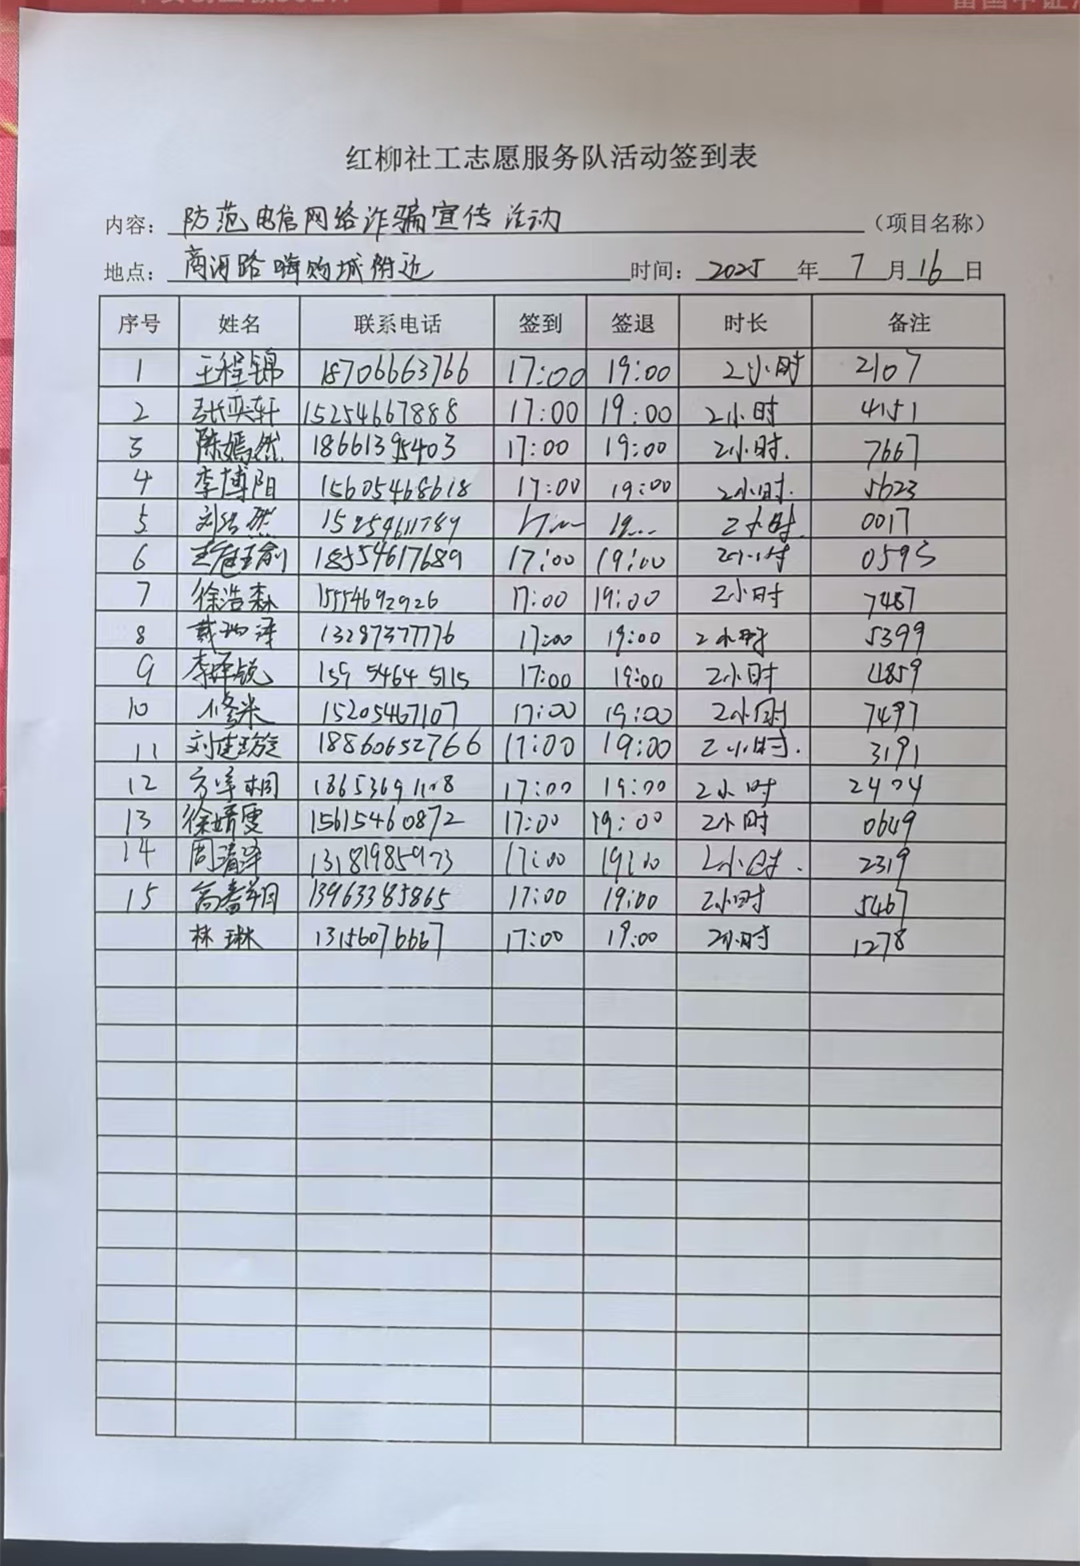 红柳社工志愿服务队活动签到表
内容：防范电信网络诈骗宣传活动（项目名称）
地点：商河路嗨购城附近 时间：2025年7月16日
序号 姓名 联系电话 签到 签退 时长 备注
1 王程锦 18706663766 17:00 19:00 2小时 2107
2 张奕轩 15254667888 17:00 19:00 2小时 4151
3 陈嫣然 18661395403 17:00 19:00 2小时. 7667
4 李博阳 15605468618 17:00 19:00 2小时. 5623
5 刘浩然 15254611789 2小时. 0017
6 18554617689 17:00 19:00 2小时 0595
7 徐浩森 1554692926 17:00 19:00 2小时 7487
8 13297377776 17:00 19:00 2小时 5399
9 李泽锐 159 5464 5115 17:00 19:00 2小时 4859
10 修米 15205467107 17:00 19:00 2小时 7497
11 刘建璇 18860652766 17:00 19:00 2小时. 3191
12 17:00 19:00 2小时 2404
13 徐婧雯 15615460872 17:00 19:00 2小时 0649
14 周清泽 13181985973 17:00 19:00 2小时. 2319
15 13963385865 17:00 19:00 2小时 5467
林琳 13156076667 17:00 19:00 2小时 1278